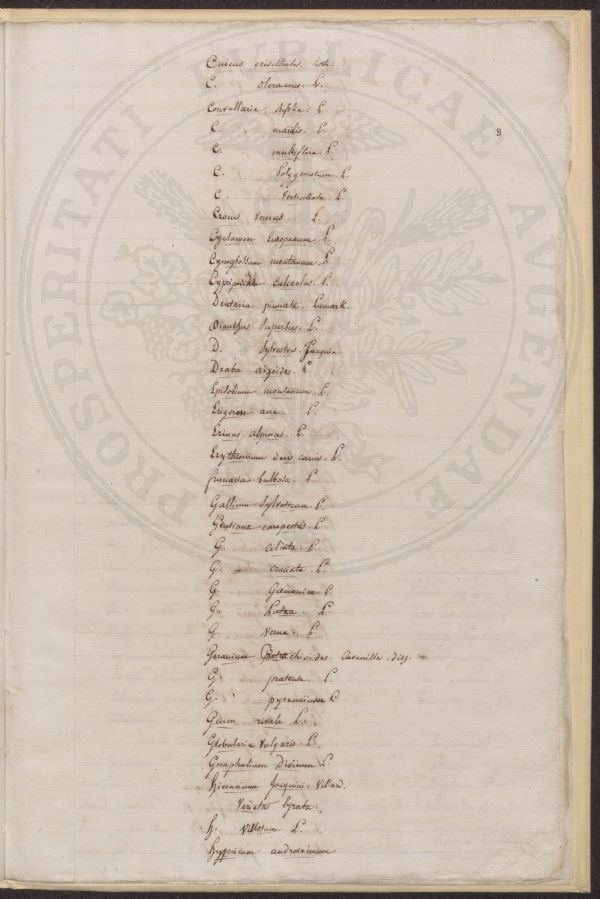 PROSPERITATI PUBLICAE AUGENDAE
9
Cnicus erisithales. Roth.
C. oleraceus. L.
Convallaria bifolia. L
C. maialis. L.
C. multiflora. L.
C. Polygonatum. L.
C. Verticillata. L
Crocus vernus L.
Cyclamen Europaeum. L.
Cynoglossum montanum. L
Cypripedium calceolus. L.
Dentaria pinnata. Lamark.
Dianthus Superbus. L.
D. Sylvestris. Jacquin.
Draba aizoides. L.
Epilobium montanum. L.
Erigeron acre. L.
Erinus alpinus. L.
Erythronium dens canis. L.
fumaria bulbosa. L
Gallium Sylvaticum. L.
Gentiana campestris L
G. ciliata. L.
G. cruciata. L.
G. Germanica L
G. Lutea L
G. Verna. L.
Geranium chioides Cavanille. diss.
G. pratense. L
G. pyrenaicum L
Geum rivale L.
Globularia Vulgaris. L
Gnaphalium Dioicum L
hieracium Jacquini. Villard.
Varietas lyrata.
h. Villosum. L.
hypericum androsaemum